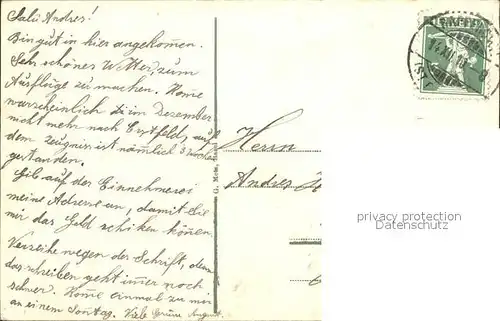 Sali Andres!
Bin gut in hier angekommen.
Sehr schönes Wetter, zum
Ausflüge zu machen. Kome
warscheinlich im Dezember
nicht mehr nach Erstfeld, auf
dem Zeugnis ist nämlich 3 Wochen
gestanden.
Gib auf der Einnehmerei
meine Adresse an, damit Sie
mir das Geld schiken können.
Verzeihe wegen der Schrift, denn
das schreiben geht immer noch
schwer. Kome einmal zu mir
an einem Sontag. Viele Grüsse August.
Herrn
Andres
G. Metz,
privacy protection
www.ansichtskarten-